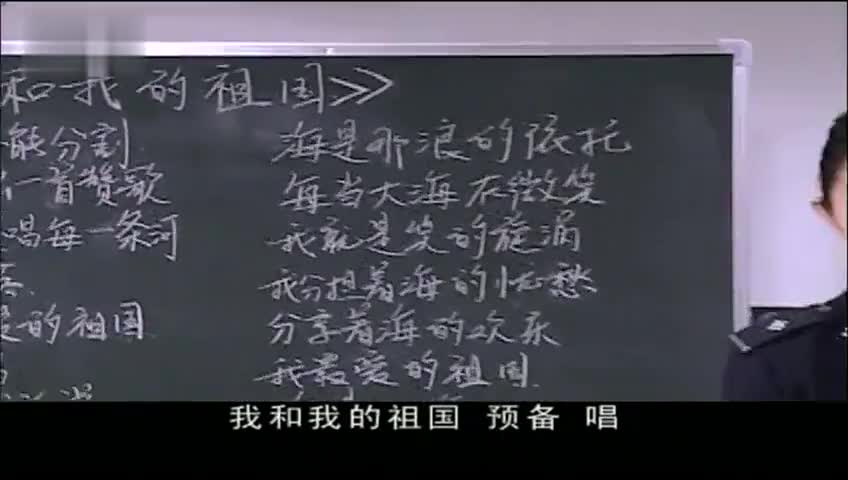 和我的祖国》
能分割
一首赞歌
唱每一条河
的祖国
海是那浪的依托
每当大海在微笑
我就是笑的旋涡
我分担着海的忧愁
分享着海的欢乐
我最爱的祖国
我和我的祖国 预备 唱